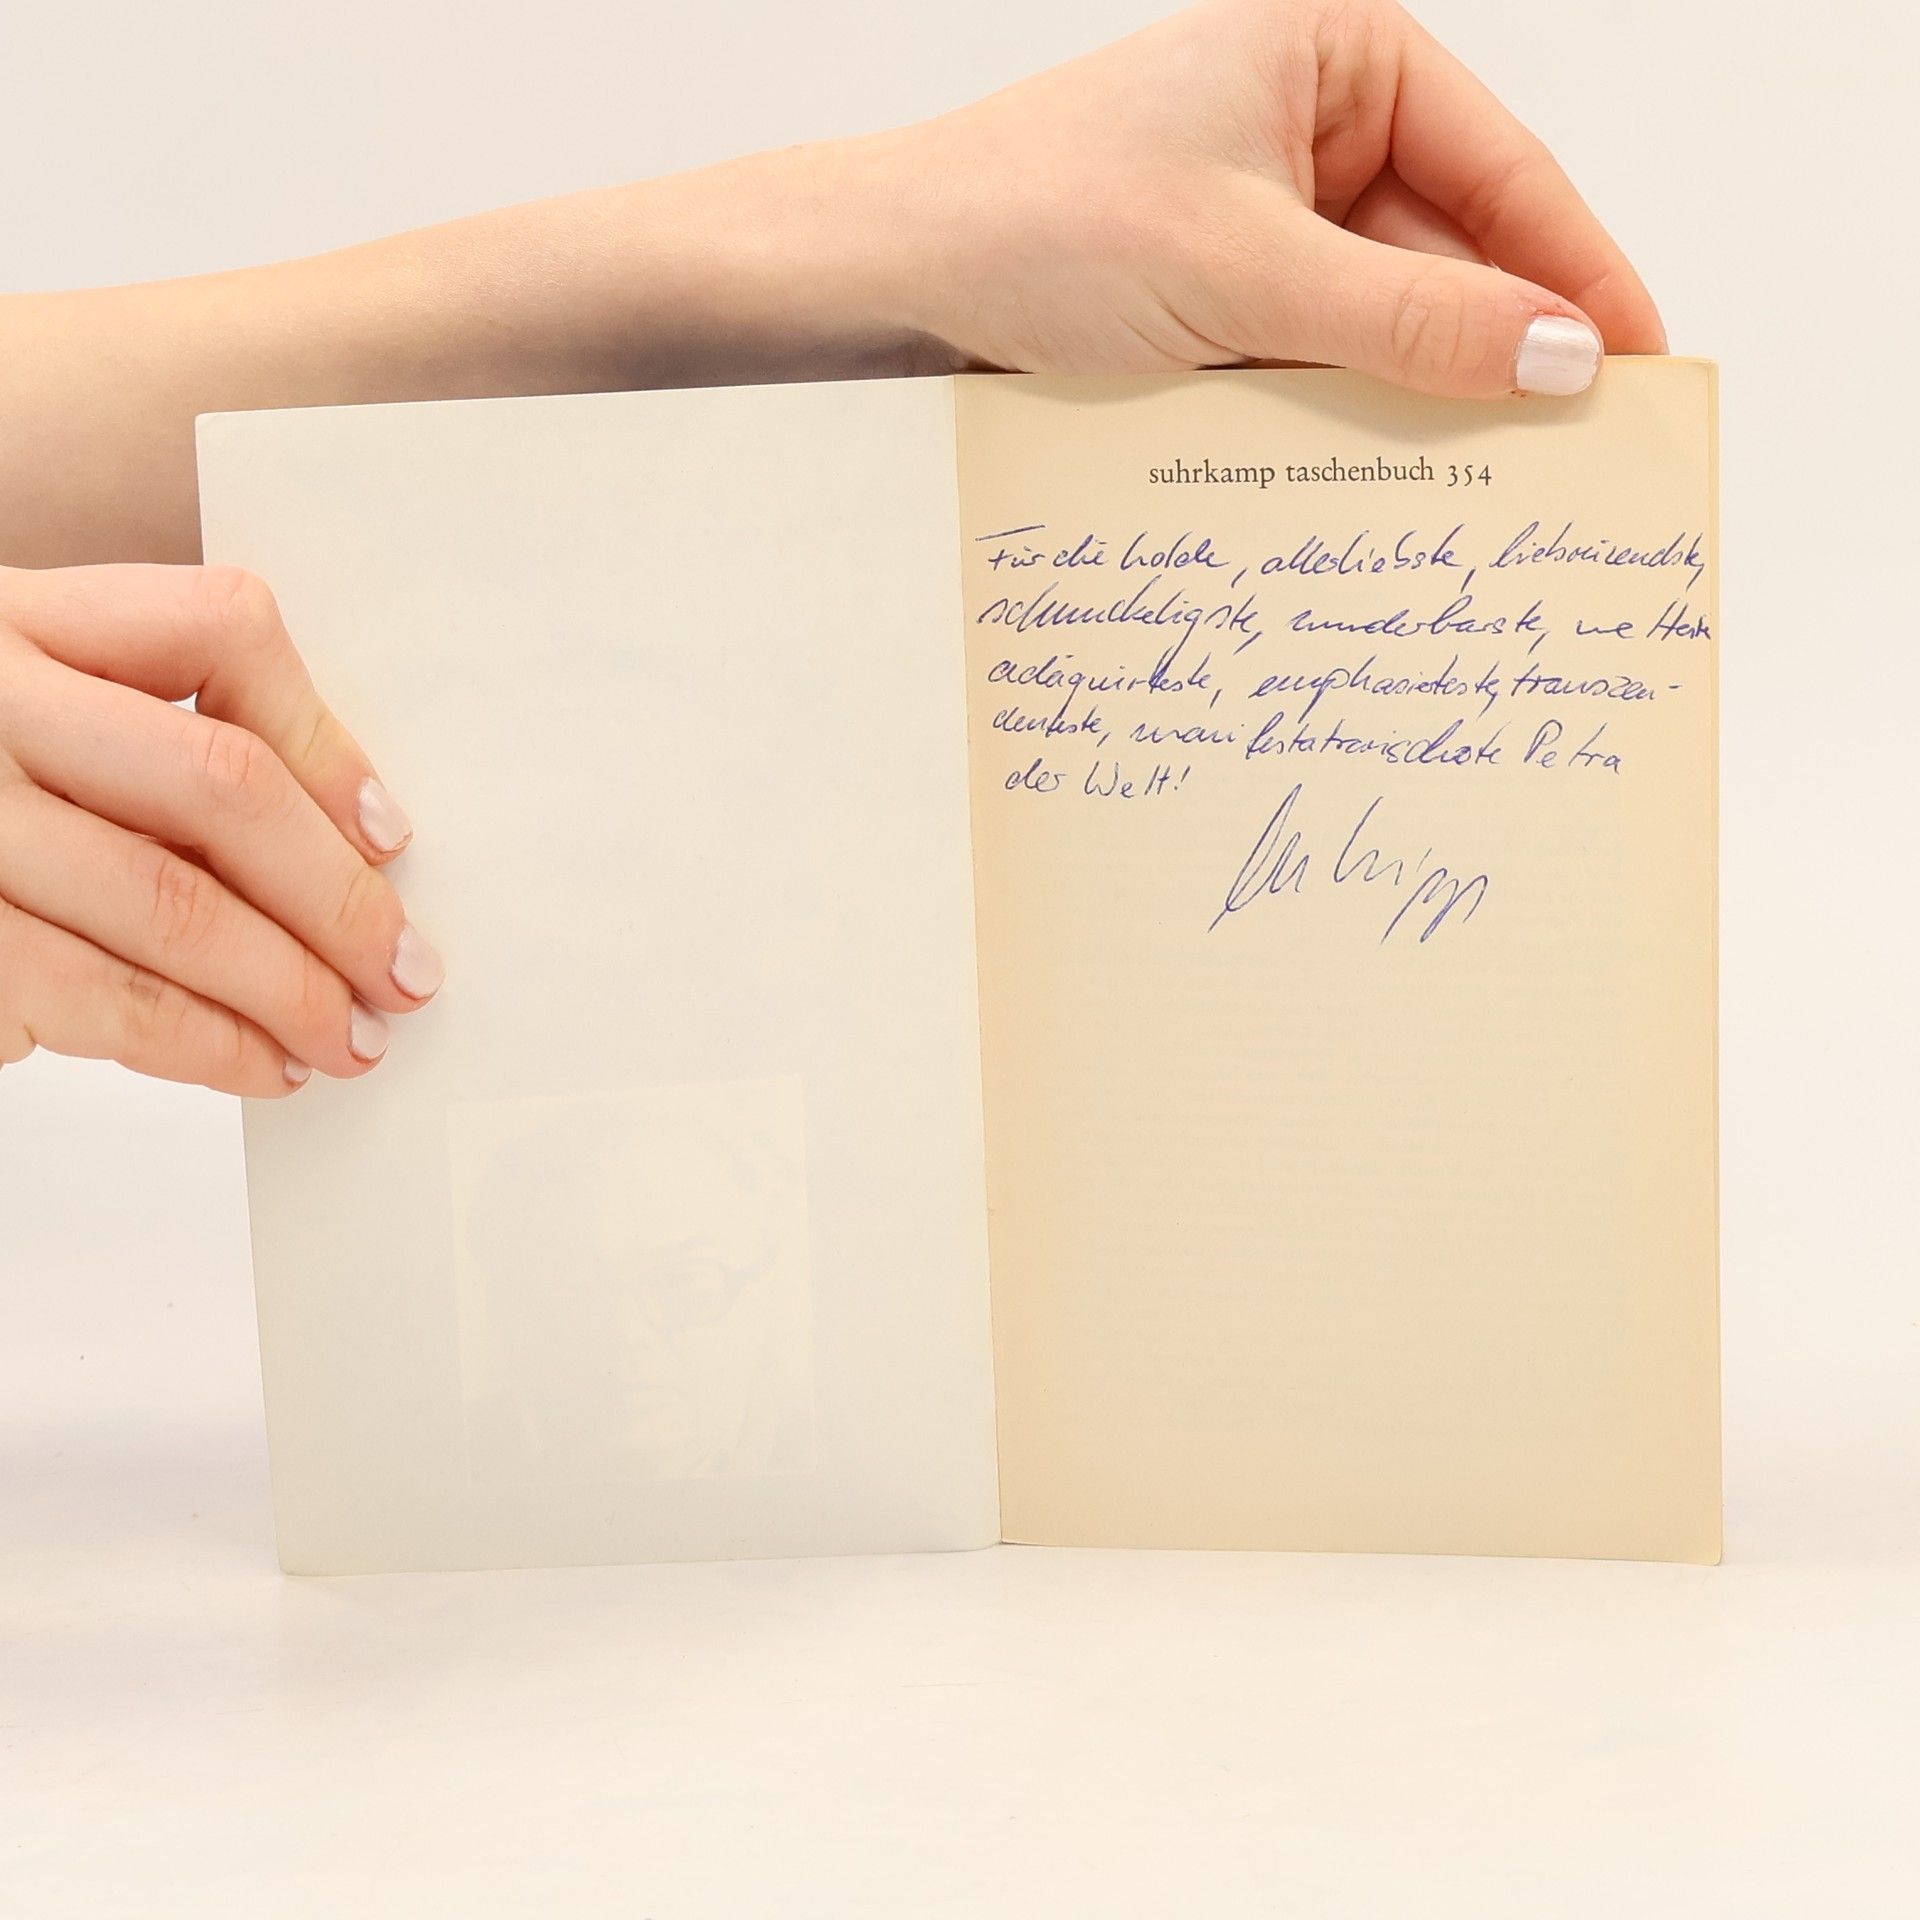 suhrkamp taschenbuch 354
Für die holde, allerliebste, liebreizendste,
schnuckeligste, wunderbarste,
adäquateste, emphasierteste, transzen-
denteste, Petra
der Welt!